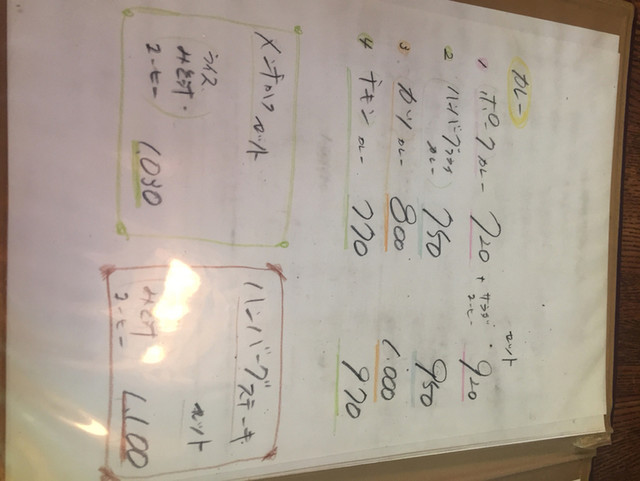 カレー
セット
1 ポークカレー 720 + サラダ・コーヒー 920
2 (ハンバーグ カレー) 750 950
3. カツカレー 800 1,000
4 チキンカレー 770 970
メンチカツ セット
ライス
みそ汁・
コーヒー 1,030
ハンバーグステーキ
セット
みそ汁
コーヒー 1,100